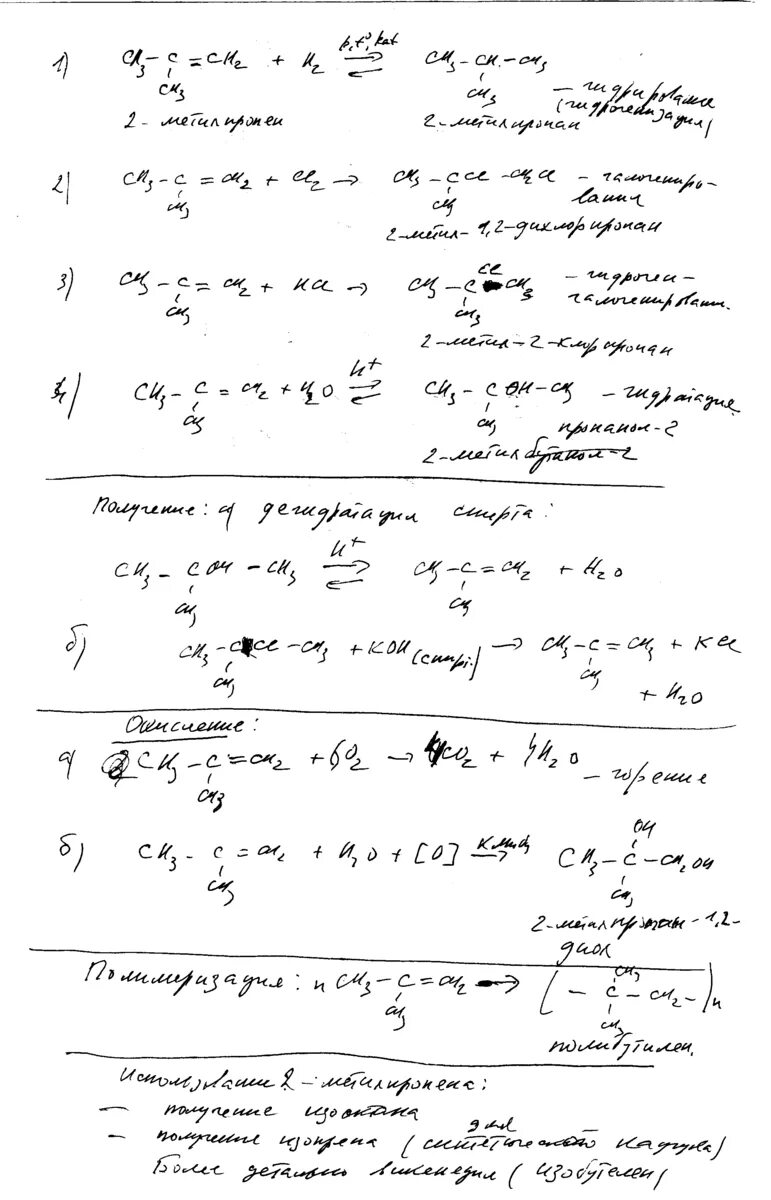 1) CH3 – C = CH2 + H2 p,t°,kat ⇌ CH3 – CH – CH3
CH3 CH3 – гидрирование
(гидрогенизация)
2-метилпропен 2-метилпропан
2) CH3 – C = CH2 + Cl2 → CH3 – CCl – CH2Cl – галогениро-
CH3 CH3 вания
2-метил-1,2-дихлорпропан
3) CH3 – C = CH2 + HCl → CH3 – C – CH3 – гидроген-
Cl
CH3 CH3 галогенировани.
2-метил-2-хлорпропан
4) CH3 – C = CH2 + H2O H+ ⇌ CH3 – COH – CH3 – гидратация
CH3 CH3 пропанол-2
2-метилбутанол-2
Получение: а) дегидратация спирта:
CH3 – COH – CH3 H+ ⇌ CH3 – C = CH2 + H2O
CH3 CH3
б) CH3 – CCl – CH3 + KOH (спирт.) → CH3 – C = CH3 + KCl
CH3 CH3 + H2O
Окисление:
а) CH3 – C = CH2 + 6O2 → 4CO2 + 4H2O – горение
CH3
б) CH3 – C = CH2 + H2O + [O] KMnO4 → CH3 – C – CH2OH
OH
CH3 CH3
2-метилпропан-1,2-
диол
Полимеризация: n CH3 – C = CH2 → ( – C – CH2 – )n
CH3
CH3 CH3
полибутилен.
Использовани 2-метилпропена:
— получение изооктана
— получение изопрена (для синтетического каучука)
Более детально википедия (изобутелен)